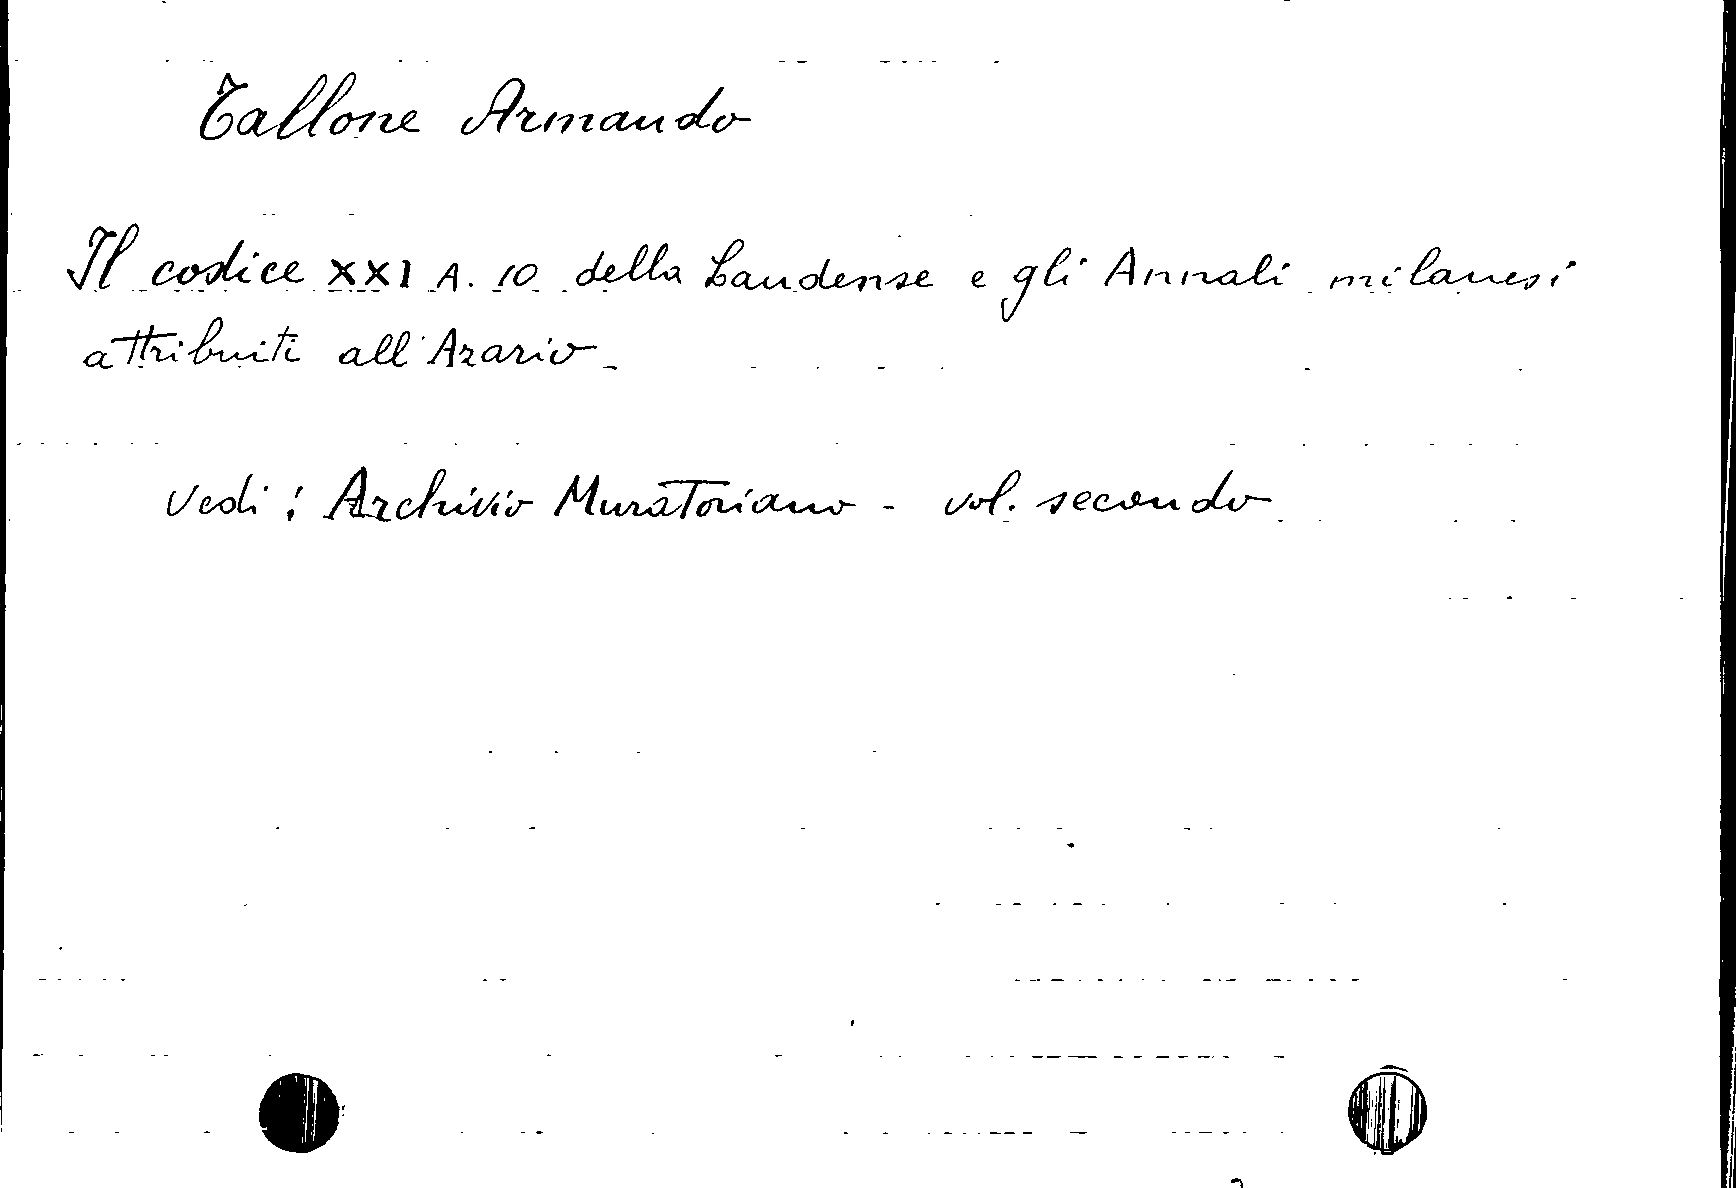 Tallone Armando
Il codice XXI A. 10 della Laudense e gli Annali milanesi
attribuiti all'Azario
vedi: Archivio Muratoriano - vol. secondo